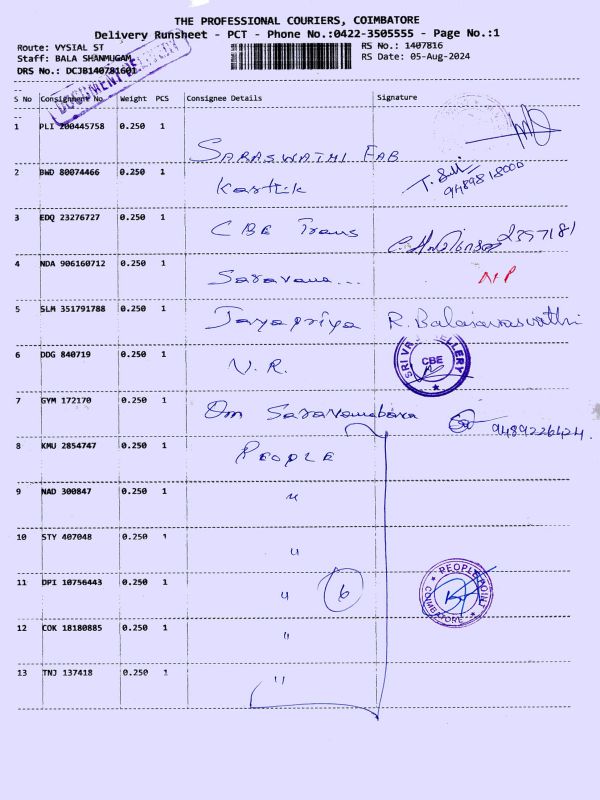 THE PROFESSIONAL COURIERS, COIMBATORE
Delivery Runsheet - PCT - Phone No.:0422-3505555 - Page No.:1
Route: VYSIAL ST RS No.: 1407816
Staff: BALA SHANMUGAM RS Date: 05-Aug-2024
DRS No.: DCJB140781601
S No Consignment No Weight PCS Consignee Details Signature
1 PLI 200445758 0.250 1 SARASWATHI FAB
2 BWD 80074466 0.250 1 Kartik
3 EDQ 23276727 0.250 1 CBE Trans 2397181
4 NDA 906160712 0.250 1 Saravana... NP
5 SLM 351791788 0.250 1 Jayapriya R. Balasaraswathi
6 DDG 840719 0.250 1 V.R. CBE
7 GYM 172170 0.250 1 Om Saravanabava 9489226424.
8 KMU 2854747 0.250 1 PEOPLE
9 NAD 300847 0.250 1 "
10 STY 407048 0.250 1 "
11 DPI 10756443 0.250 1 " 6 PEOPLE POINT COIMBATORE
12 COK 18180885 0.250 1 "
13 TNJ 137418 0.250 1 "